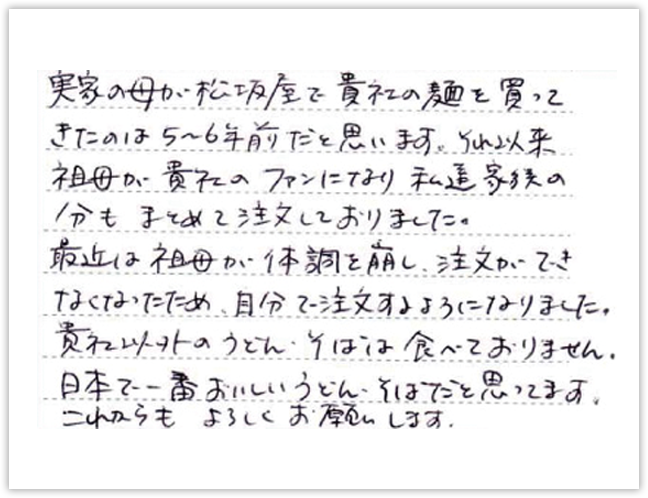 実家の母が松坂屋で貴社の麺を買って
きたのは5〜6年前だと思います。それ以来
祖母が貴社のファンになり私達家族の
分もまとめて注文しておりました。
最近は祖母が体調を崩し、注文ができ
なくなったため、自分で注文するようになりました。
貴社以外のうどん・そばは食べておりません。
日本で一番おいしいうどん・そばだと思ってます。
これからもよろしくお願いします。